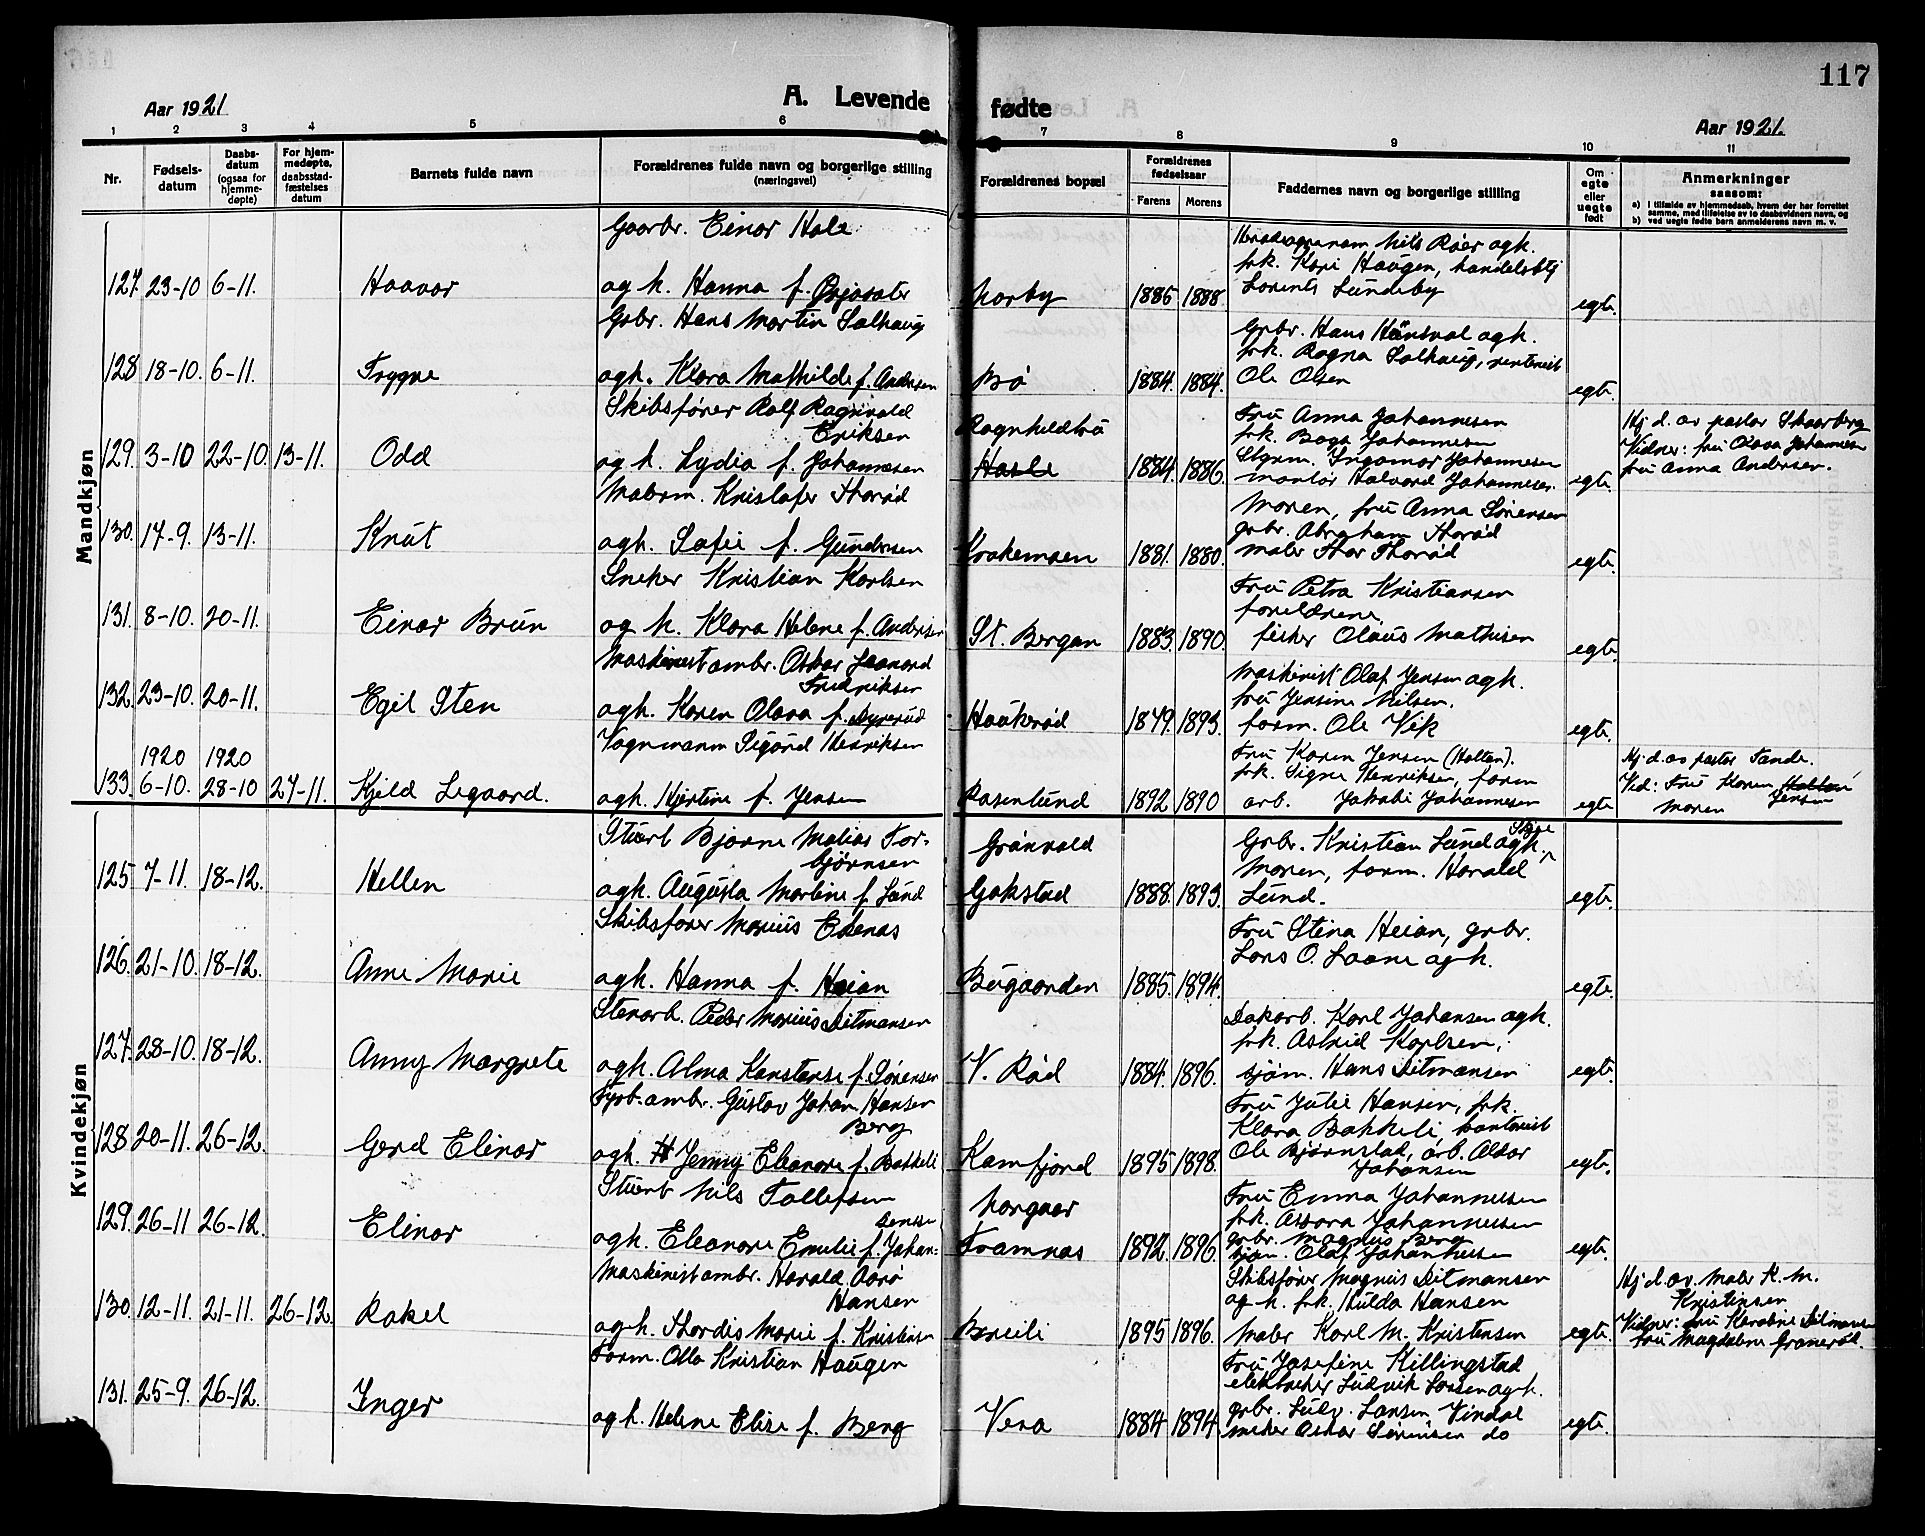 117
Aar 1921
A. Levende fødte
Aar 1921.
1 2 3 4 5 6 7 8 9 10 11
Nr.
Fødsels-
datum
Daabs-
datum
(ogsaa for
hjemme-
døpte)
For hjem-
medøpte,
daabsstad-
fæstelses
datum
Barnets fulde navn
Forældrenes fulde navn og borgerlige stilling
(næringsvei)
Forældrenes bopæl
Forældrenes
fødselsaar
Farens Morens
Faddernes navn og borgerlige stilling
Om
egte
eller
uegte
født
Anmerkninger
saasom:
a) I tilfælde av hjemmedaab, hvem der har forrettet
samme, med tilføielse av to daabsvidners navn, og
b) ved uegte fødte børn anmelderens navn m. v.
Mandkjøn
Gaarbr. Einar Hole
127. 23-10 6-11. Haavar ag h. Hanna f. Norby 1885 1888
frk. Kari Haugen,
Lorents Lundeby
egte.
Grbr. Hans Martin Solhaug
128 18-10. 6-11. Trygve agh. Klara Mathilde f. Andersen Bø 1884. 1884.
Grbr. Hans agh.
frk. Ragna Solhaug, rentenist
Ole Olsen
egte.
Skibsfører Rolf Ragnvald
Eriksen
129. 3-10 22-10. 13-11. Odd ag h. Lydia f. Johannesen
Ragnhildsrø
Hasle
1884. 1886.
Fru Anna Johannesen
frk. Johannesen
Ingemar Johannesen
montør Halvard Johannesen.
egte.
Hj. d. av pastor Skaarberg
Vidner: fru Olava Johannesen
fru Anna Andersen.
Malerm. Kristofer Thorød
130. 17-9. 13-11. Knut agh. Sofie f. Gundersen Krokemoen 1881. 1880.
Moren, fru Anna Sørensen
grbr. Abraham Thorød
maler Thor Thorød
egte.
Sneker Kristian Karlsen
131. 8-10. 20-11. Einar Brun ag h. Klara Helene f. Andersen St. Bergan 1883. 1890.
Fru Petra Kristiansen
forældrene,
fisker Olaus Mathisen
egte.
Maskinistambr. Oskar Leonard
Fredriksen
132. 23-10. 20-11. Egil Sten agh. Karen Olava f. Dyrerud Haukerød 1879. 1893.
Maskinist Olaf Jensen agh.
fru Jensine Nilsen.
form. Ole Vik
egte.
Vognmann Sigurd Henriksen
1920 1920
133. 6-10. 28-10 27-11. Kjeld Legaard. agh. Hjertine f. Jensen Rosenlund 1892 1890
Fru Karen Jensen (Holten).
frk. Signe Henriksen, form
arb. Jakobi Johannesen
egte
Hj. d. av pastor Sande.
Vid: Fru Karen Holten
Moren Jensen
Kvindekjøn
Stuert Bjarne Matias Tor-
bjørnsen
125 7-11. 18-12. Hellen agh. Augusta Martine f. Lund
Grønvold
Gokstad
1888. 1893.
Grbr. Kristian Lund agh.
Moren, form. Harald
Lund.
egte.
Skibsfører Marius Ekenæs
126. 21-10. 18-12. Anne Marie agh. Hanna f. Heian Bugaarden 1885. 1894.
Fru Stina Heian, grbr.
Lars O. Laane agh.
egte.
Stenarb. Peder Marius Ditmansen
127. 28-10. 18-12. Anny Margrete agh. Alma Konstanse f. Sørensen V. Rød 1884. 1896.
Karl Johansen agh.
frk. Astrid Karlsen,
sjøm. Hans Ditmansen
egte.
Fyrb. ambr. Gustav Johan Hansen
Berg
128 20-11. 26-12. Gerd Elinor agh. Jenny Eleanore f. Bakkeli Kamfjord 1895 1898.
Fru Julie Hansen, frk.
Klara Bakkeli, kantorist
Ole Bjørnstad, arb. Alsar
Johansen
egte.
Stuert Nils Tollefsen
129. 26-11 26-12. Elinor agh. Eleanore Emelie f. Johan-
nessen
Norgaar
Framnæs
1892. 1896.
Fru Emma Johannesen
frk. Assora Johannesen
grbr. Magnus Berg
sjøm. Olaf Johannesen
egte.
Maskinistambr. Harald Aarø
Hansen
130. 12-11. 21-11. 26-12. Rakel agh. Thordis Marie f. Kristensen Breili 1895 1896.
Skibsfører Magnus Ditmansen
og h. frk. Hulda Hansen
Maler Karl M. Kristensen
egte.
Hj. d. av. Maler K. M.
Kristensen
Vidner: fru Karoline Ditmansen
fru Magdalene Granerød.
Form. Otto Kristian Haugen
131. 25-9. 26-12. Inger agh. Helene Elise f. Berg Vera 1884 1894.
Fru Josefine Killingstad
elektriker Ludvik Larsen agh.
grbr. Ludv. Larsen Vindal
sneker Oskar Sørensen do
egte.